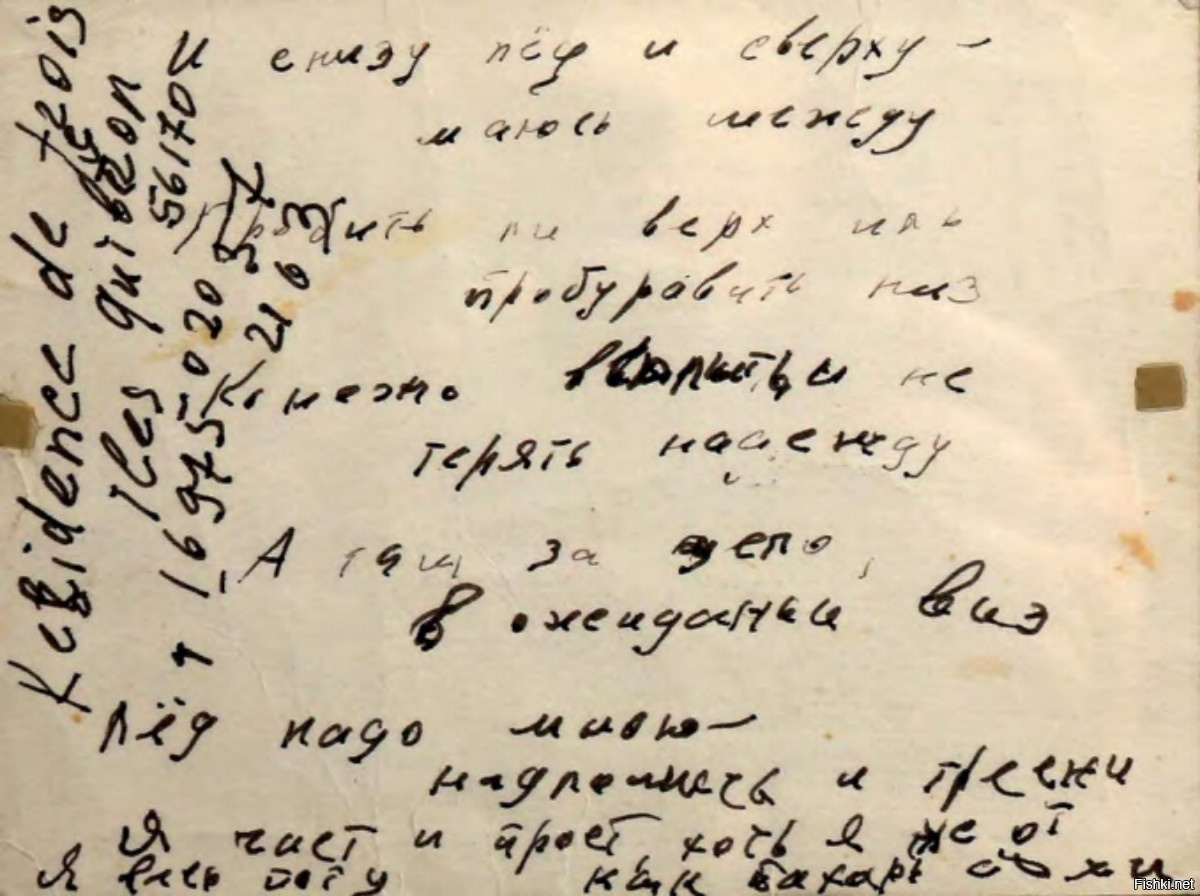 и снизу лёд и сверху –
маюсь между
Пробить ли верх иль
пробуравить низ
Конечно всплыть и не
терять надежду
А там за дело,
в ожидании виз
Лёд надо мною –
надломись и тресни
Я чист и прост хоть я не от
Я весь поту как пахарь сохи
Residence de
Iles quiberon
56170
Fishki.net